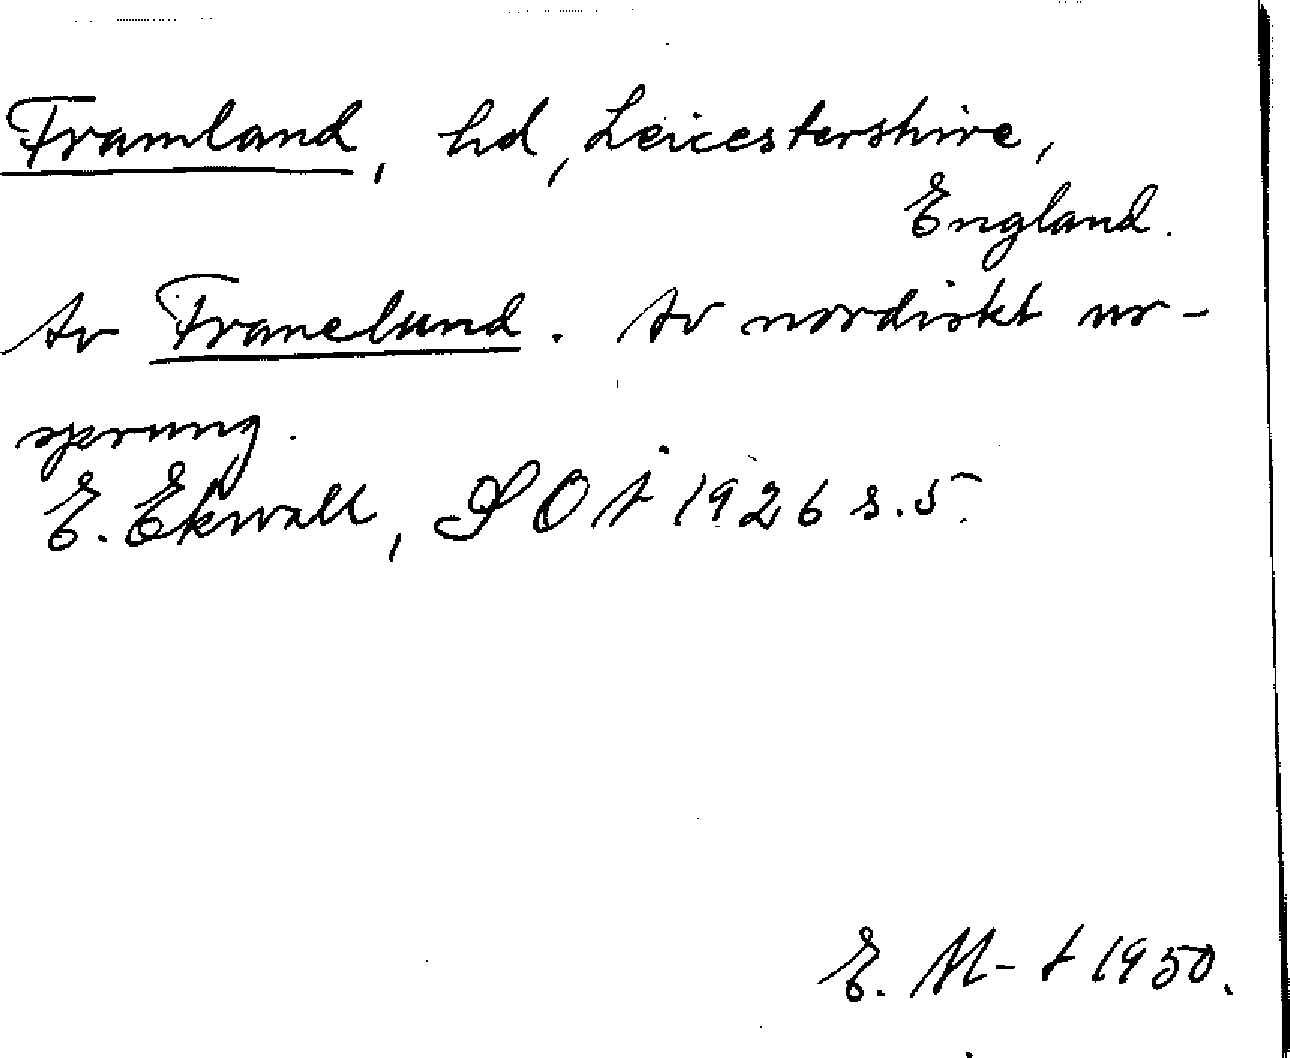 Framland, hd, Leicestershire,
England.
Av Franelund. Av nordiskt ur-
sprung.
E. Ekwall, SOÅ 1926 s. 5.
E. M-t 1950.